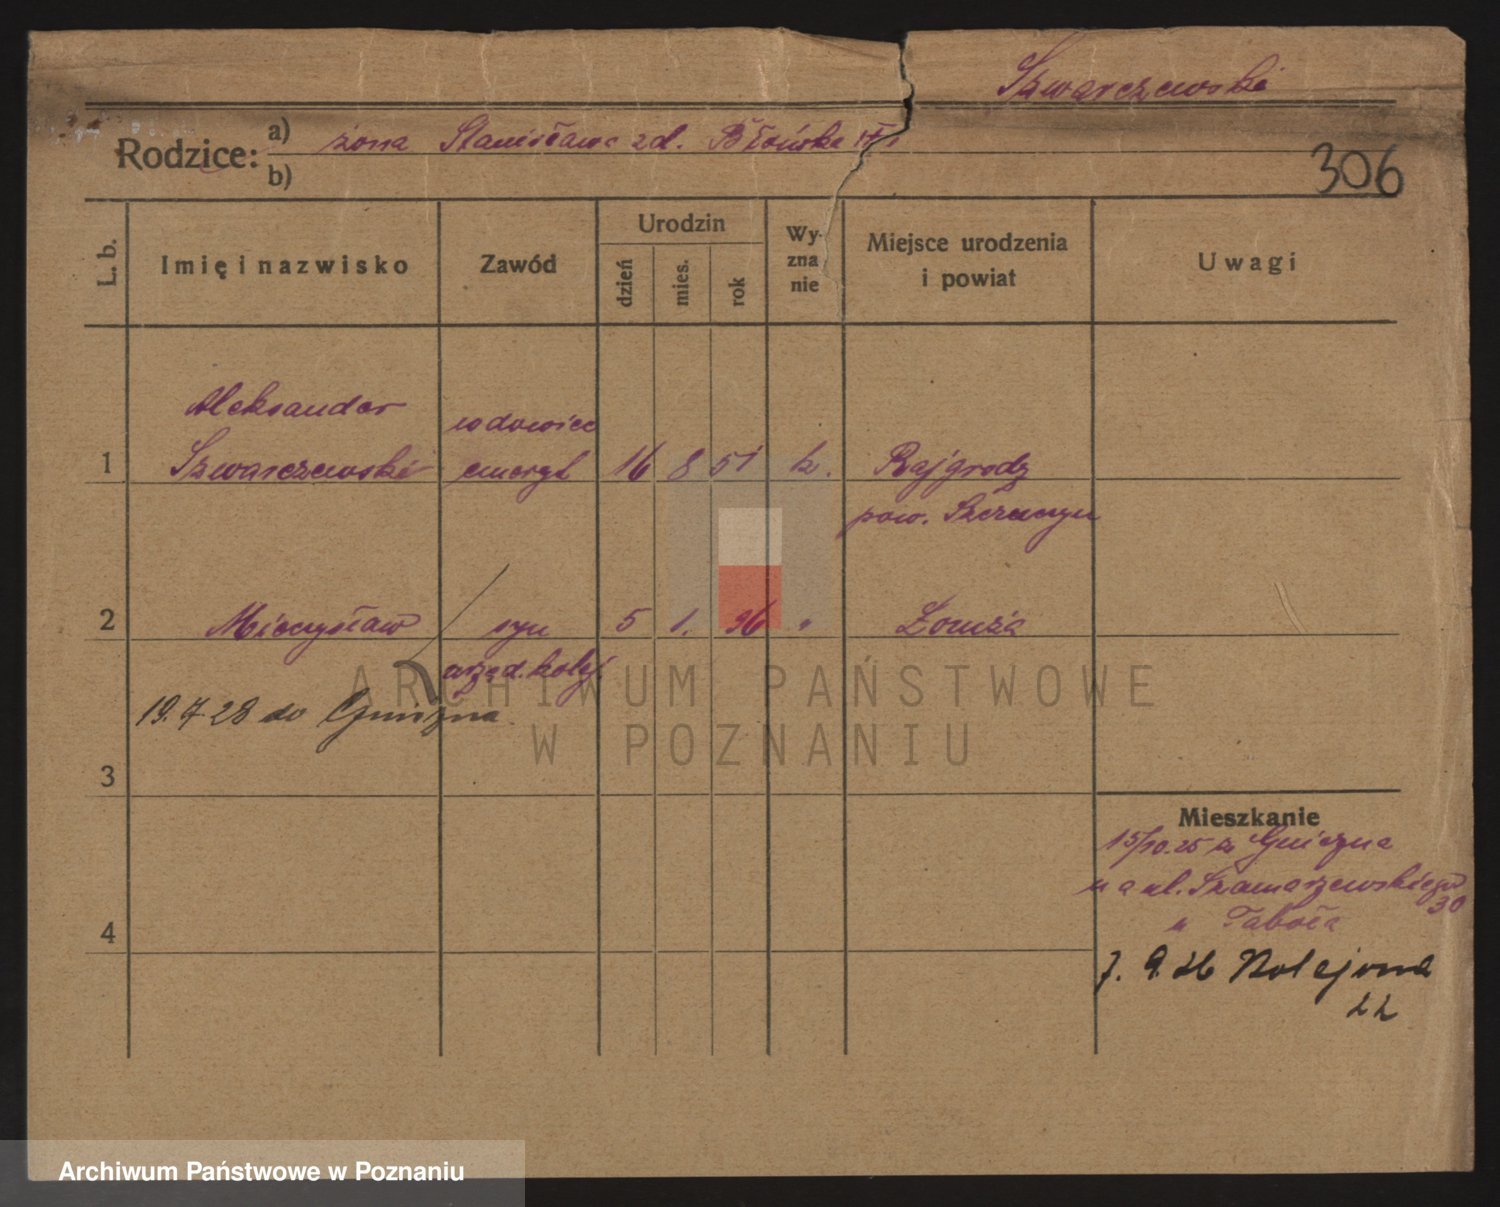 Szwarczewski
Rodzice: a) żona Stanisława zd. Błońska
b)
306
L. b.
Imię i nazwisko
Zawód
Urodzin
dzień
mies.
rok
Wy-
zna
nie
Miejsce urodzenia
i powiat
Uwagi
Aleksander wdowiec
1 Szwarczewski emeryt 16 8 51 k. Rajgrodz
pow. Szczuczyn
2 Mieczysław syn 5 1. 96 " Łomża
urzęd. kolej.
19.7.28 do Gniezna.
3
4
Mieszkanie
15/10.25 z Gniezna
na ul. Szamarzewskiego
30
u Taboła
7. 9. 26 Kolejowa
22
ARCHIWUM PAŃSTWOWE
W POZNANIU
Archiwum Państwowe w Poznaniu